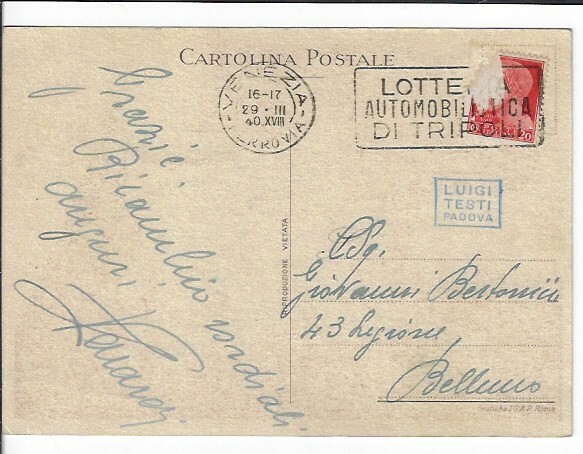 CARTOLINA POSTALE
VENEZIA
16-17
29·III
40.XVIII
FERROVIA
LOTTERIA
AUTOMOBILISTICA
DI TRIPOLI
20
LUIGI
TESTI
PADOVA
Grazie.
Ricambio cordiali
auguri
RIPRODUZIONE VIETATA
Giovanni
43 Legione
Belluno
Grafiche I.G.A.P. Roma